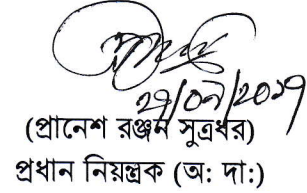 ২৭/০৭/২০১৭
(প্রানেশ রঞ্জন সুত্রধর)
প্রধান নিয়ন্ত্রক (অ: দা:)